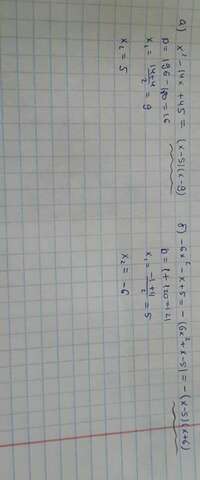 а) x² - 14x + 45 = (x-5)(x-9)
D = 196 - 180 = 16
x₁ = (14+4)/2 = 9
x₂ = 5
б) -6x² - x + 5 = -(6x² + x - 5) = -(x-5)(x+6)
D = 1 + 120 = 121
x₁ = (-1+11)/2 = 5
x₂ = -6